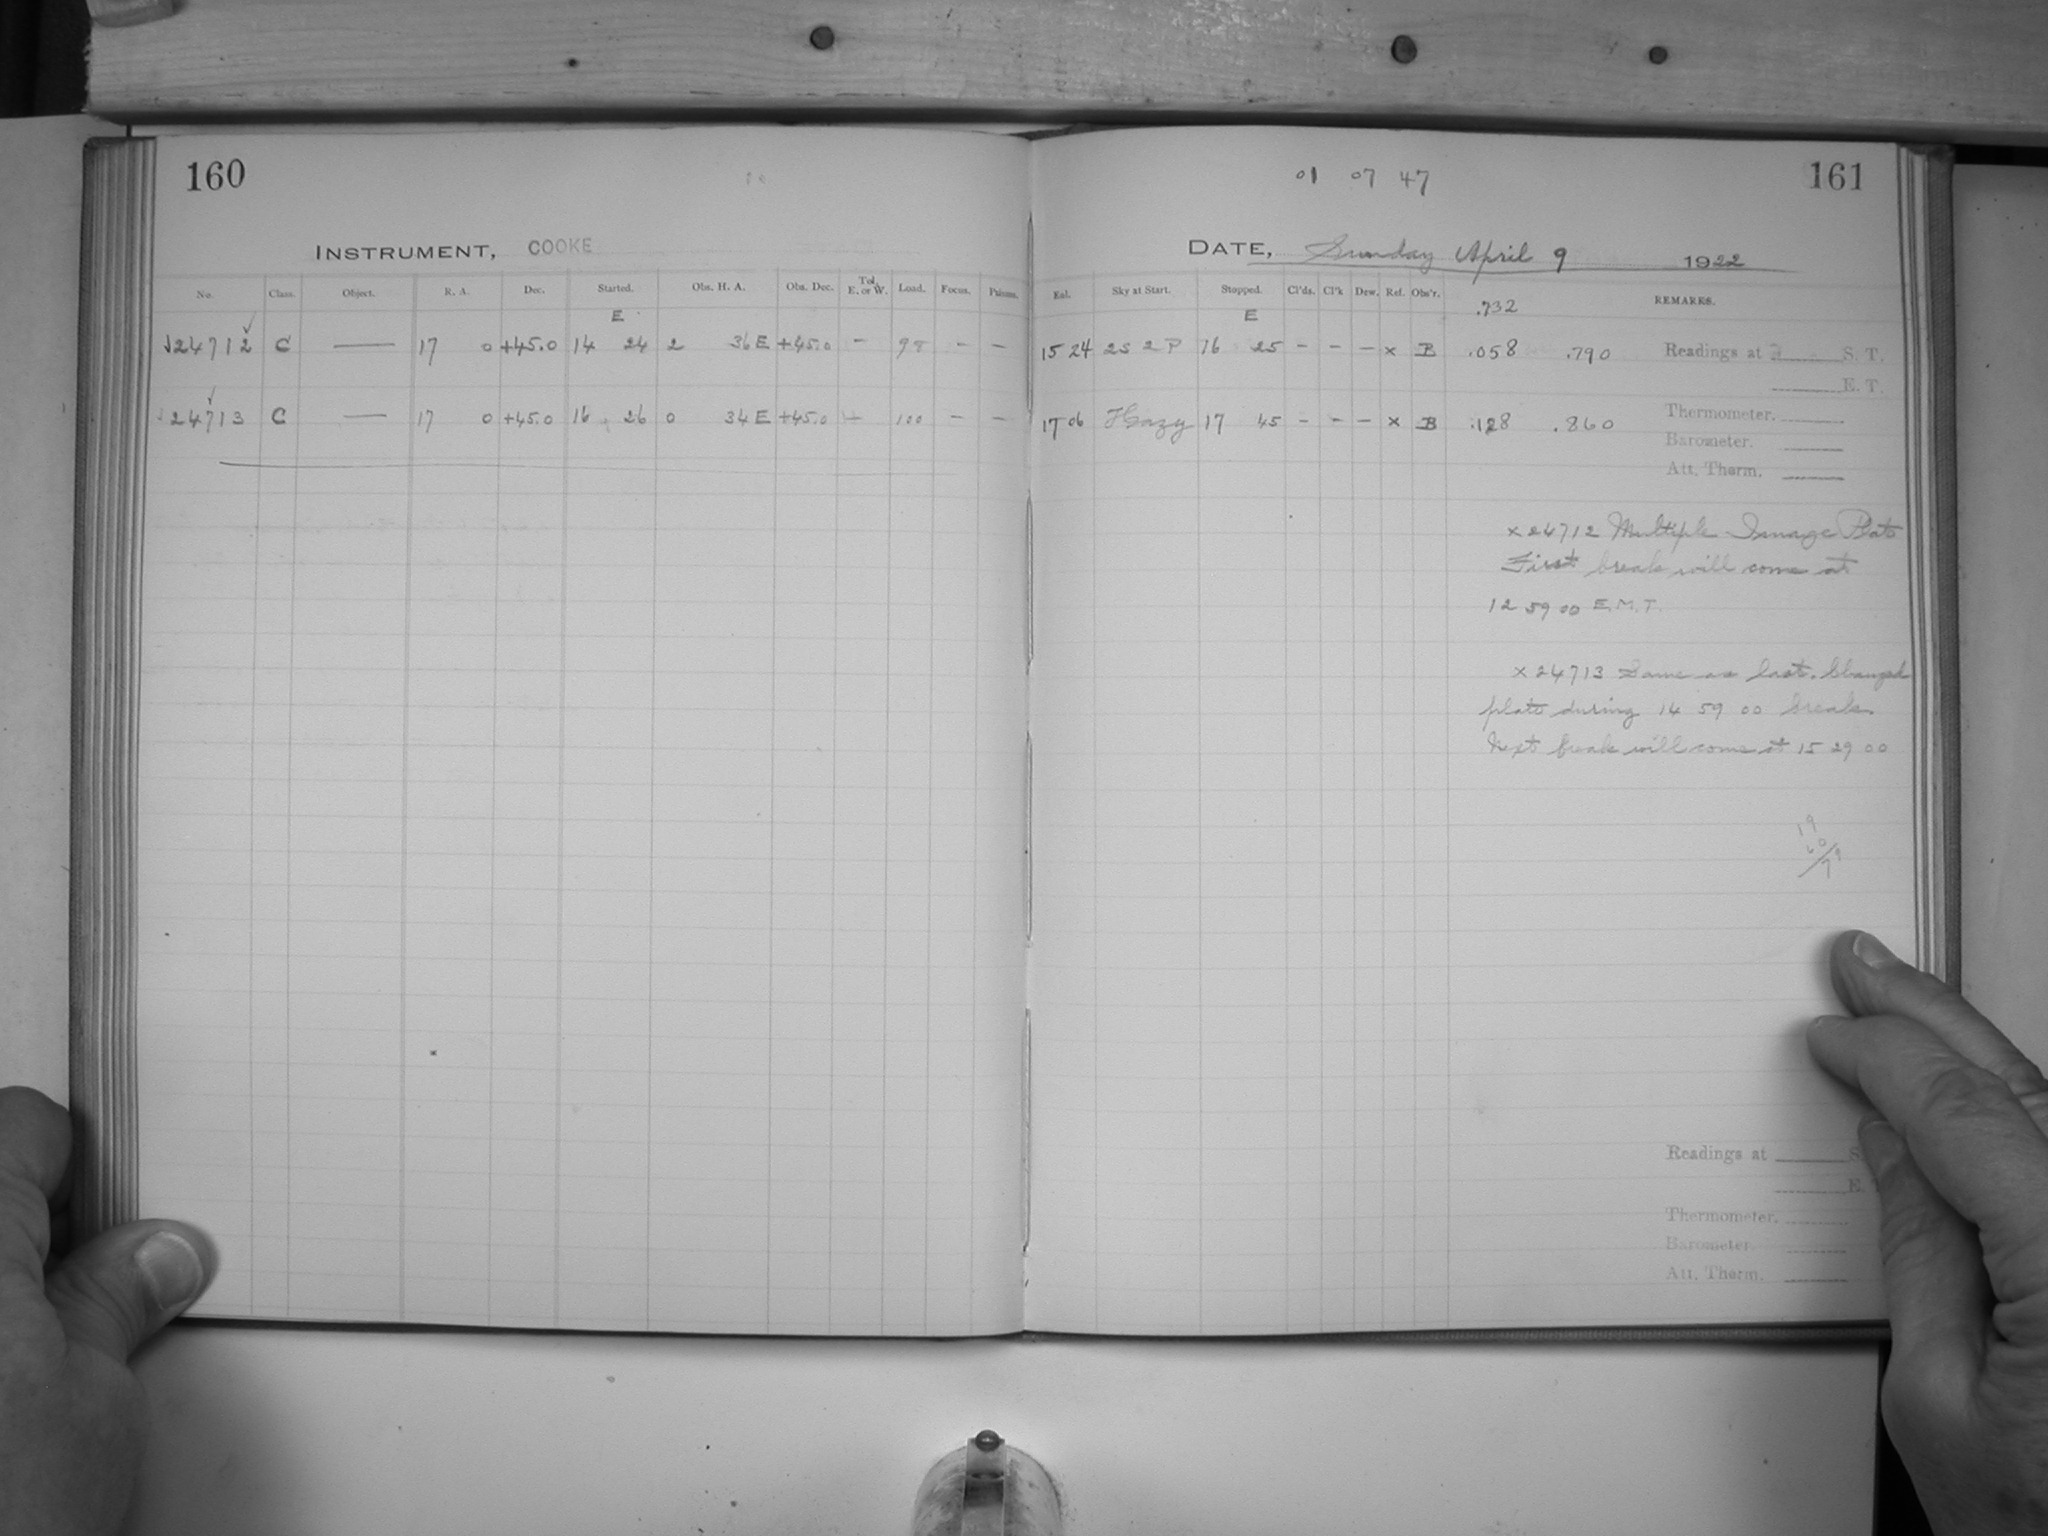 160
01 07 47
161
INSTRUMENT, COOKE
DATE, Sunday April 9 1922
No. Class. Object. R. A. Dec. Started. Obs. H. A. Obs. Dec. Tel. E. or W. Load. Focus. Prisms. Eal. Sky at Start. Stopped. Cl'ds. Cl'k Dew. Ref. Obs'r. REMARKS.
E E .732
√24712 C — 17 0 +45.0 14 24 2 36 E +45.0 – 98 – – 15 24 2S 2 P 16 25 – – – x B .058 .790 Readings at S. T.
E. T.
24713 C — 17 0 +45.0 16 26 0 34 E +45.0 100 – – 17 06 Hazy 17 45 – – – x B .128 .860 Thermometer.
Barometer.
Att. Therm.
x 24712 Multiple Image Plate
First break will come at
12 59 00 E.M.T.
x 24713 Same as last. Changed
plate during 14 59 00 break.
Next break will come at 15 29 00
19
60
79
Readings at S.
E.
Thermometer.
Barometer
Att. Therm.